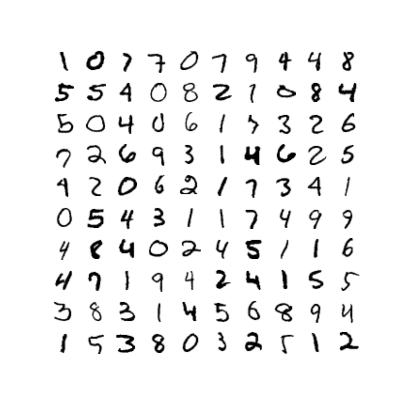 1 0 7 7 0 7 9 4 4 8
5 5 4 0 8 2 1 0 8 4
5 0 4 0 6 1 7 3 2 6
7 2 6 9 3 1 4 6 2 5
4 2 0 6 2 1 7 3 4 1
0 5 4 3 1 1 7 4 9 9
4 8 4 0 2 4 5 1 1 6
4 7 1 9 4 2 4 1 5 5
3 8 3 1 4 5 6 8 9 4
1 5 3 8 0 3 2 5 1 2